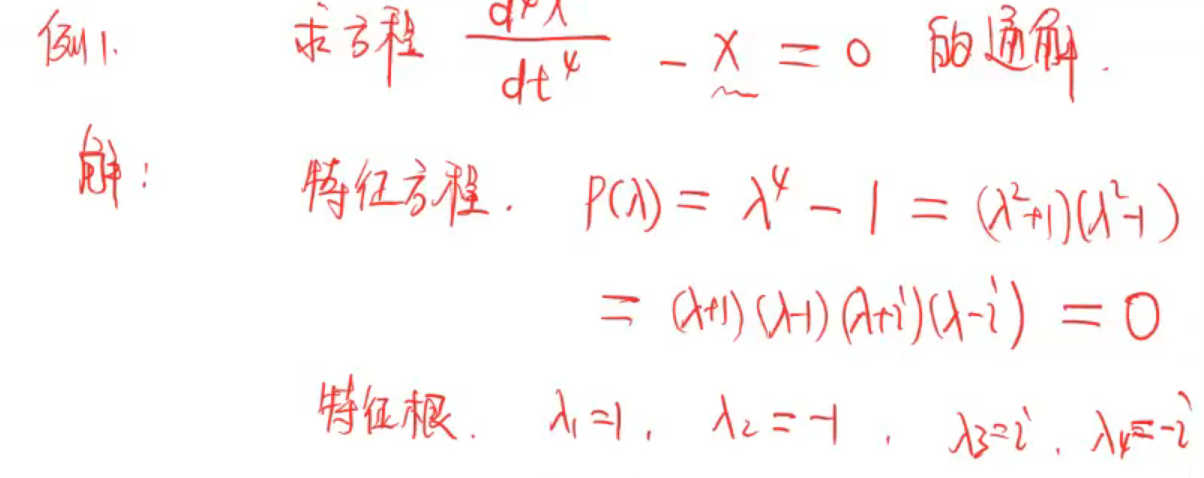 例1. 求方程 d⁴x/dt⁴ - x = 0 的通解.
解: 特征方程. P(λ) = λ⁴ - 1 = (λ²+1)(λ²-1)
= (λ+1)(λ-1)(λ+i)(λ-i) = 0
特征根. λ₁=1, λ₂=-1, λ₃=i, λ₄=-i